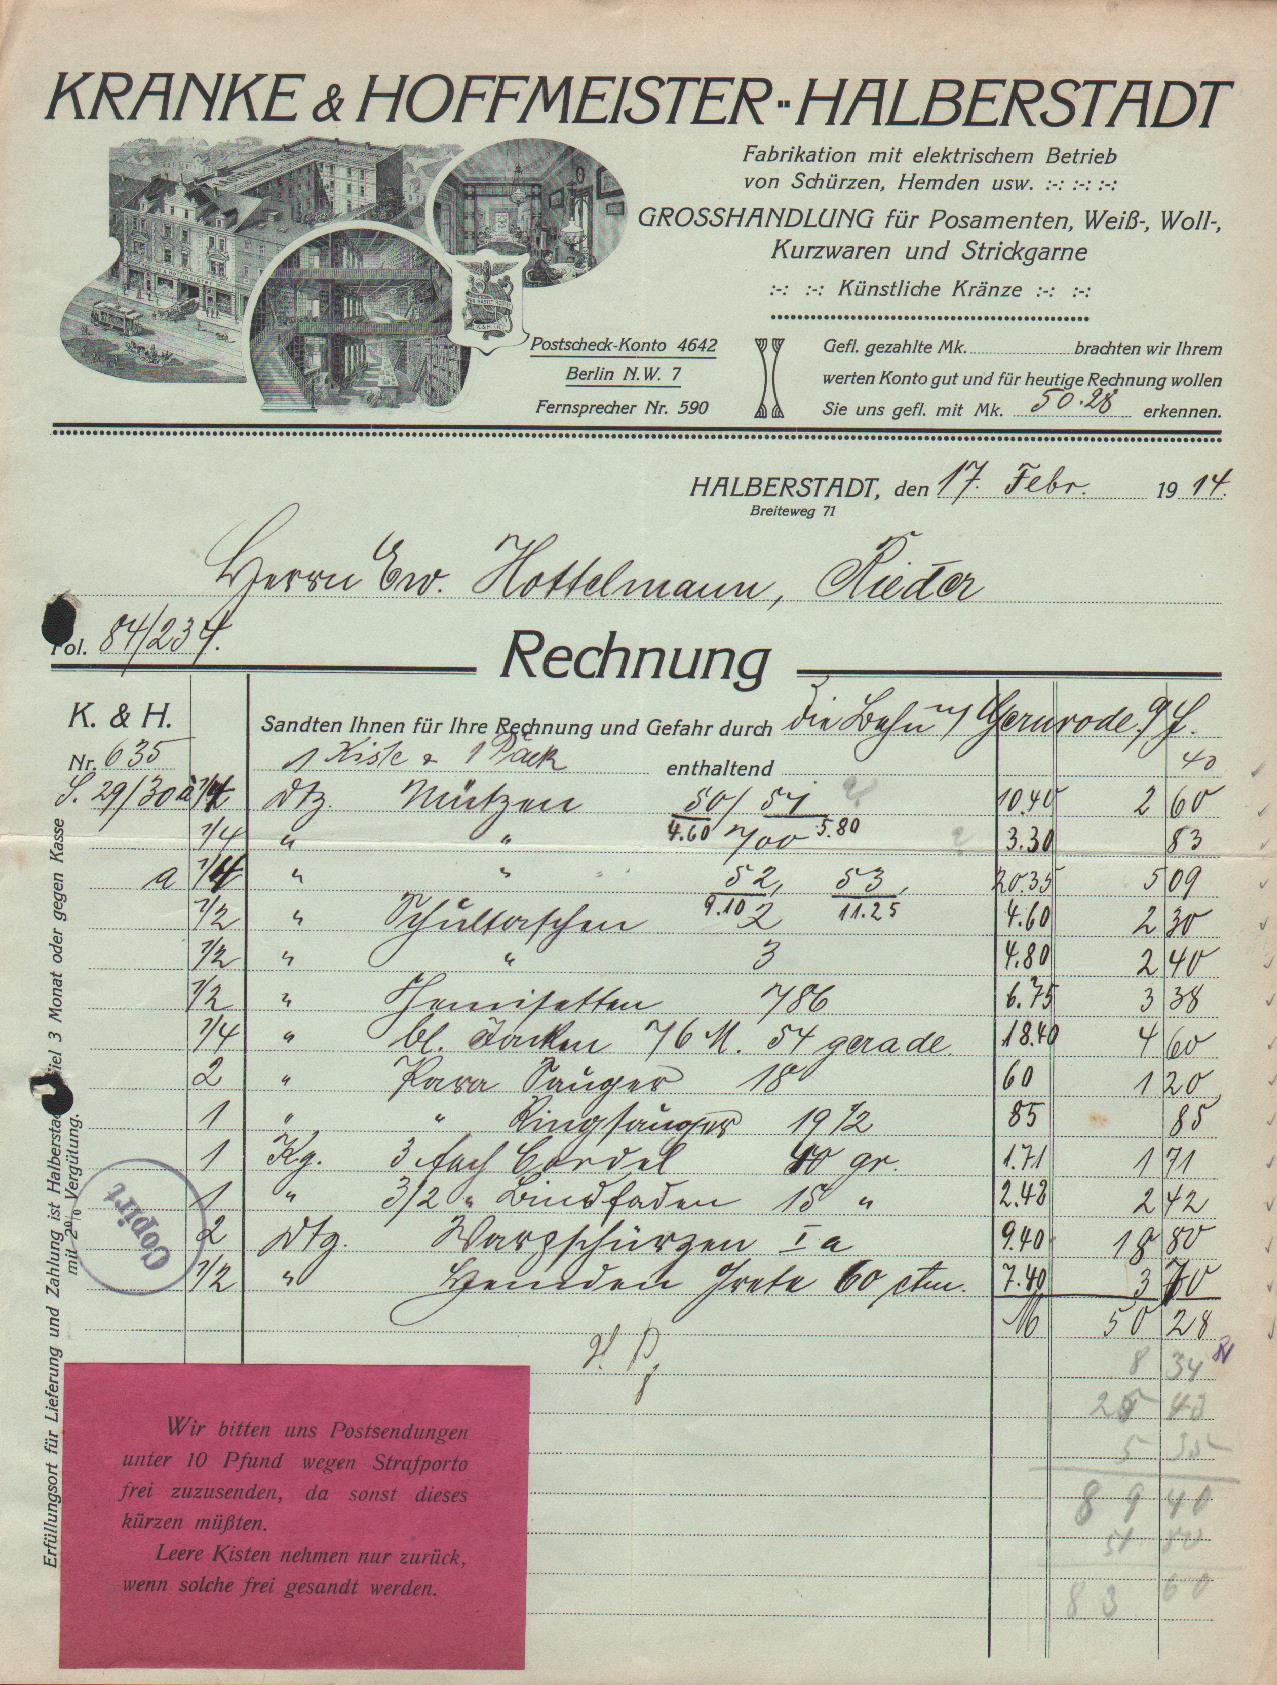 KRANKE & HOFFMEISTER-HALBERSTADT
Fabrikation mit elektrischem Betrieb
von Schürzen, Hemden usw. :-: :-: :-:
GROSSHANDLUNG für Posamenten, Weiß-, Woll-,
Kurzwaren und Strickgarne
:-: :-: Künstliche Kränze :-: :-:
Postscheck-Konto 4642
Berlin N.W. 7
Fernsprecher Nr. 590
Gefl. gezahlte Mk. brachten wir Ihrem
werten Konto gut und für heutige Rechnung wollen
Sie uns gefl. mit Mk. 50.28 erkennen.
HALBERSTADT, den 17. Febr. 1914.
Breiteweg 71
Herrn Ew. Hottelmann, Rieder
Fol. 84/234.
Rechnung
K. & H.
Sandten Ihnen für Ihre Rechnung und Gefahr durch die Bahn Gernrode
Nr. 635 1 Kiste & 1 Pack enthaltend 40
S. 29/30 à 1/4 Dtz. Mützen 50/ 51 10.40 2 60
4.60 5.80
1/4 " " 700 3.30 83
a 1/4 " " 52, 53, 20.35 5 09
9.10 11.25
1/2 " Schultaschen 2 4.60 2 30
1/2 " " 3 4.80 2 40
1/2 " Chemisetten 786 6.75 3 38
1/4 " bl. Jacken 76 M. 54 gerade 18.40 4 60
2 " Para Sauger 18 60 1 20
1 " " Ringsauger 19 1/2 85 85
1 Kg. 3 fach Cordel 40 gr. 1.71 1 71
1 " 3/2 " Bindfaden 15 " 2.42 2 42
2 Dtz. Warpschürzen Ia 9.40 18 80
1/2 " Hemden Grete 60 ctm. 7.40 3 70
M 50 28
8 34
25 43
5 35
89 40
83 60
Copirt
Erfüllungsort für Lieferung und Zahlung ist Halberstadt. Ziel 3 Monat oder gegen Kasse
mit 2% Vergütung.
Wir bitten uns Postsendungen
unter 10 Pfund wegen Strafporto
frei zuzusenden, da sonst dieses
kürzen müßten.
Leere Kisten nehmen nur zurück,
wenn solche frei gesandt werden.